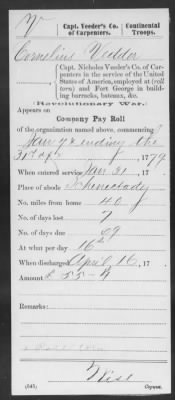 V
Capt. Veeder's Co. of Carpenters.
Continental Troops.
Cornelius Vedder
Capt. Nicholes Veeder's Co. of Car-
penters in the service of the United
States of America, employed at (roll
torn) and Fort George in build-
ing barracks, bateaux, &c.
(Revolutionary War.)
Appears on
Company Pay Roll
of the organization named above, commencing
Jan 72 ending the
31st of 1779
When entered service Jan 21, 17
Place of abode Schenectady
No. miles from home 40
No. of days lost 7
No. of days due 69
At what per day 16
When discharged April 16, 17
Amount £ 55-4
Remarks:
(545)
Copyist.